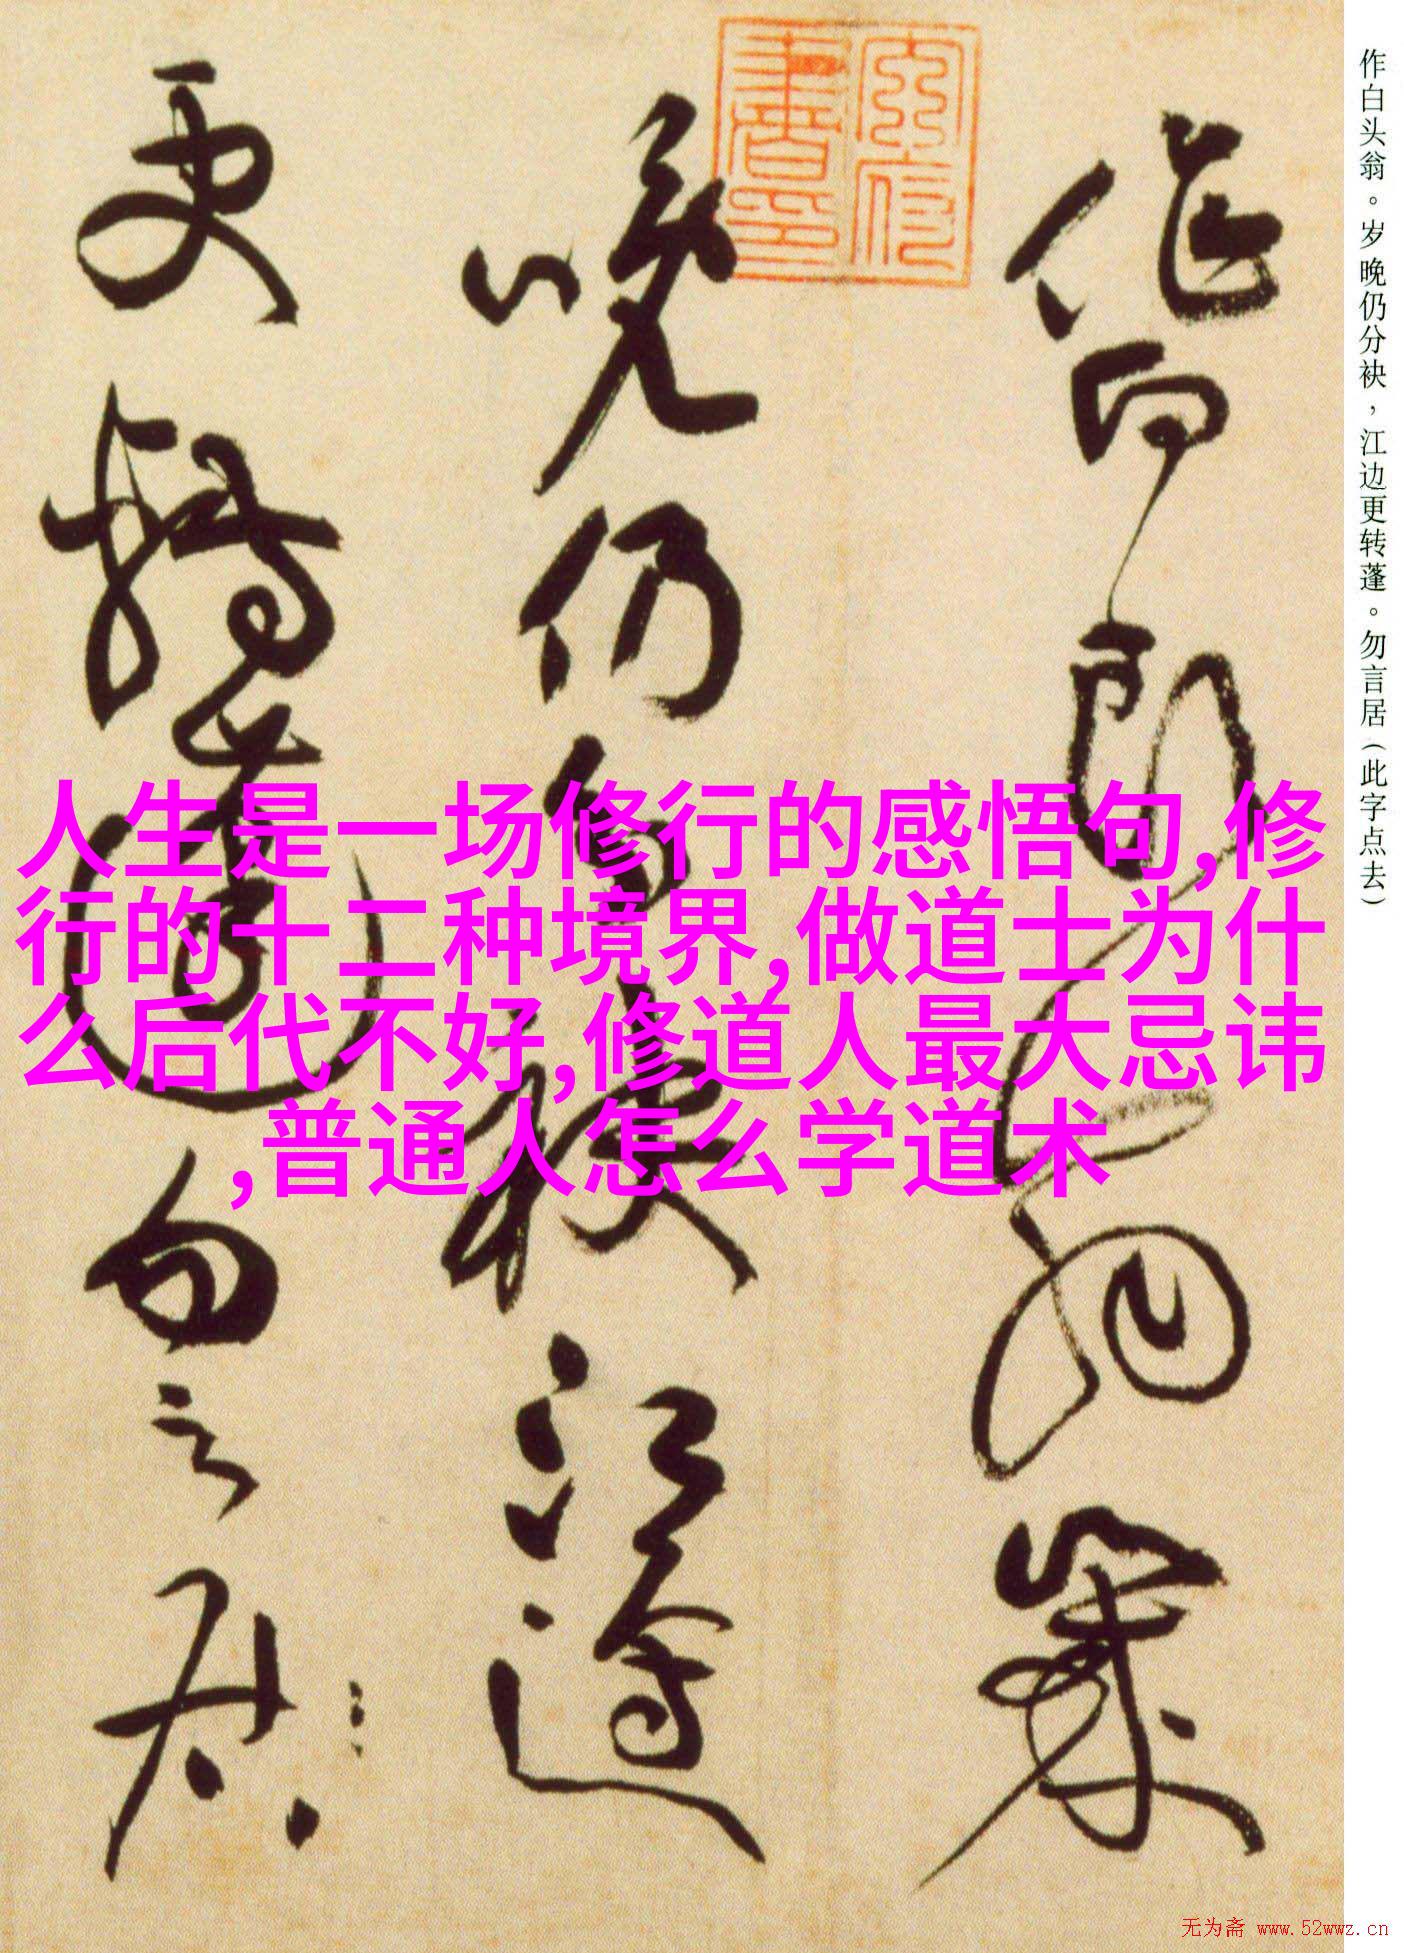 作白头翁。岁晚仍分袂，江边更转蓬。勿言居（此字点去）
作白头翁岁
晚仍分袂江边
更转蓬勿言居
人生是一场修行的感悟句,修
行的十二种境界,做道士为什
么后代不好,修道人最大忌讳
,普通人怎么学道术
无为斋 www.52wwz.cn